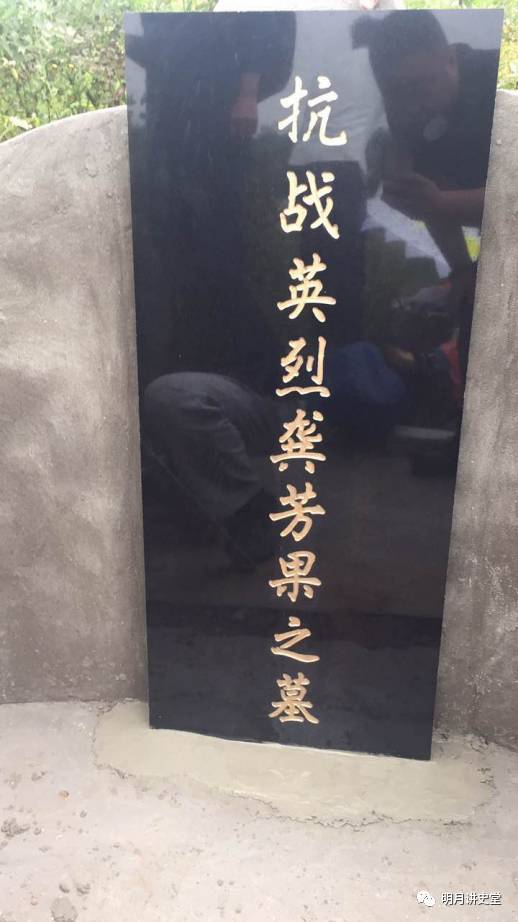 抗战英烈龚芳果之墓
明月讲史堂